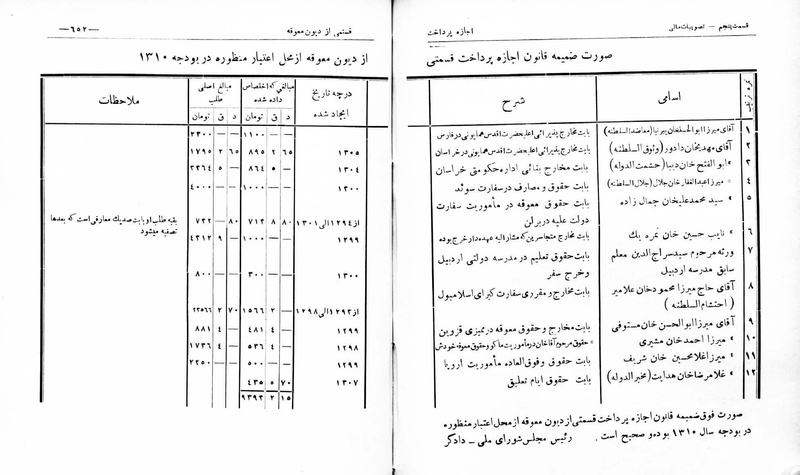 قسمت پنجم — تصویبات مالی
اجازه پرداخت
صورت ضمیمه قانون اجازه پرداخت قسمتی
نمره ترتیب
اسامی
شرح
۱
آقای میرزا ابوالحسنخان پیرنیا (معاضدالسلطنه)
بابت مخارج پذیرائی اعلیحضرت اقدس همایونی در فارس
۲
آقای مهدیخان دادور (وثوق السلطنه)
بابت مخارج پذیرائی اعلیحضرت اقدس همایونی در خراسان
۳
» ابوالفتح خان دیبا (حشمت الدوله)
بابت مخارج بنائی اداره حکومتی خراسان
۴
» میرزا عبدالغفار خان جلال (جلال السلطنه)
بابت حقوق و مصارف در سفارت سوئد
۵
» سید محمدعلیخان جمال زاده
بابت حقوق معوقه در مأموریت سفارت
دولت علیه در برلن
۶
» نایب حسین خان نمره یك
بابت مخارج متجاسرین که مشارالیه عهده دار خرج بوده
۷
ورثه مرحوم سید سراج الدین معلم
سابق مدرسه اردبیل
بابت حقوق تعلیم در مدرسه دولتی اردبیل
وخرج سفر
۸
آقای حاج میرزا محمود خان علامیر
(احتشام السلطنه)
بابت مخارج و مقرری سفارت کبرای اسلامبول
۹
آقای میرزا ابوالحسن خان مستوفی
بابت مخارج و حقوق معوقه در ممیزی قزوین
۱۰
» میرزا احمد خان مشیری
» حقوق مرحوم آقاخان در مأموریت ماکو و حقوق معوقه خودش
۱۱
» میرزا غلامحسین خان شریف
بابت حقوق وفوق العاده مأموریت اروپا
۱۲
» غلامرضا خان هدایت (مخبرالدوله)
بابت حقوق ایام تعلیق
صورت فوق ضمیمه قانون اجازه پرداخت قسمتی از دیون معوقه از محل اعتبار منظوره
در بودجه سال ۱۳۱۰ بوده و صحیح است . رئیس مجلس شورای ملی — دادگر
قسمتی از دیون معوقه
—۶۵۲—
از دیون معوقه از محل اعتبار منظوره در بودجه ۱۳۱۰
درچه تاریخ
ایجاد شده
مبالغی که اختصاص
داده شده
د ق تومان
مبالغ اصلی
طلب
د ق تومان
ملاحظات
— — ۱۱۰۰ — — ۲۳۰۰
۱۳۰۵ ۶۵ ۲ ۸۹۵ ۶۵ ۲ ۱۷۹۵
۱۳۰۴ — ۵ ۸۶۴ — ۵ ۲۳۶۴
۱۳۰۰ — — ۱۰۰۰ — — ۴۰۰۰
از ۱۲۹۴ الی ۱۳۰۱ ۸۰ ۸ ۷۱۲ ۸۰ — ۷۲۲
بقیه طلب او بابت صدیك معارفی است که بعدها
تصفیه میشود
۱۲۹۹ — — ۱۰۰۰ — ۹ ۴۳۱۲
۱۳۰۰ — — ۳۰۰ — — ۸۰۰
از ۱۲۹۳ الی ۱۲۹۸ — ۲ ۱۵۶۶ ۷۰ ۲ ۲۳۵۶۶
۱۲۹۹ — ۴ ۴۸۱ — ۴ ۸۸۱
۱۲۹۸ — ۴ ۵۳۶ — ۴ ۱۷۳۶
۱۲۹۹ — — ۵۰۰ — — ۲۲۵۰
۱۳۰۷ ۷۰ ۵ ۴۳۵
۱۵ ۲ ۹۳۹۲